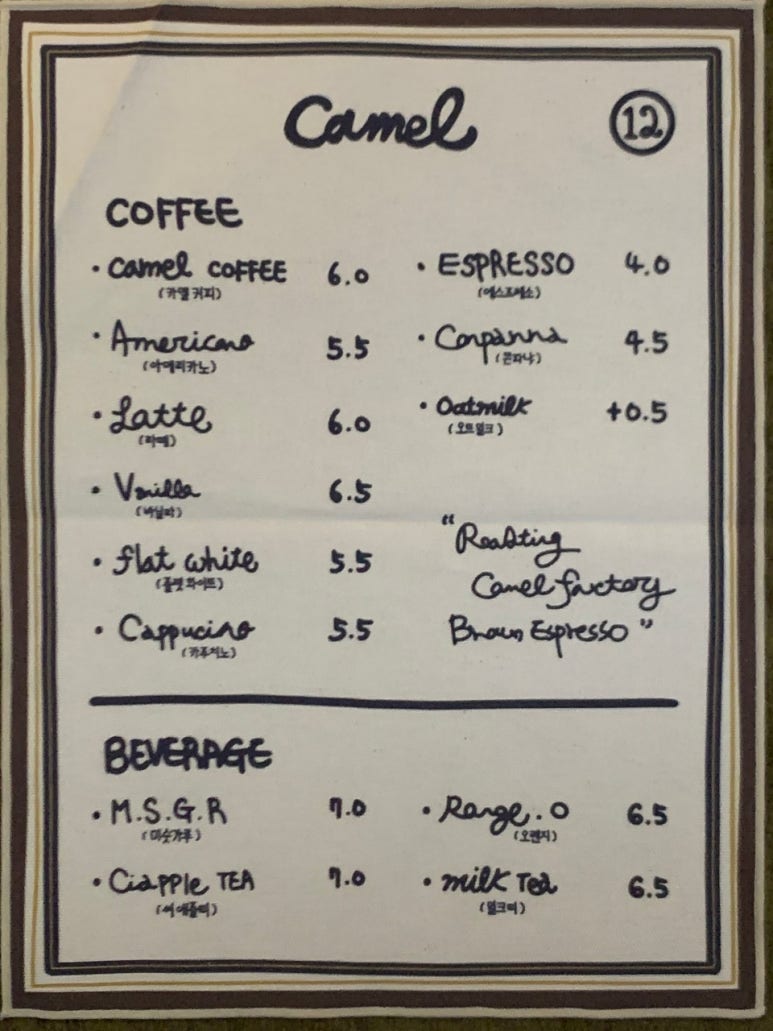 Camel
12
COFFEE
· Camel COFFEE 6.0
(카멜 커피)
· Americano 5.5
(아메리카노)
· Latte 6.0
(라떼)
· Vnilla 6.5
(바닐라)
· flat white 5.5
(플랫 화이트)
· Cappucino 5.5
(카푸치노)
· ESPRESSO 4.0
(에스프레소)
· Conpanna 4.5
(콘파냐)
· Oatmilk +0.5
(오트밀크)
"Roasting
Camel factory
Brown Espresso"
BEVERAGE
· M.S.G.R 7.0
(미숫가루)
· Ciapple TEA 7.0
(씨애플티)
· Range.O 6.5
(오렌지)
· milk Tea 6.5
(밀크티)